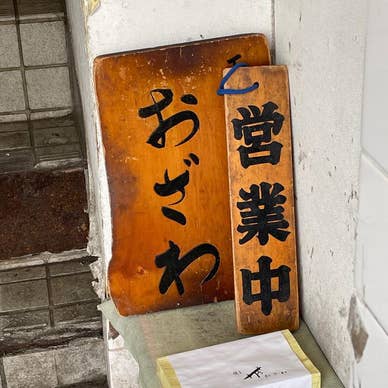 おざわ
営業中